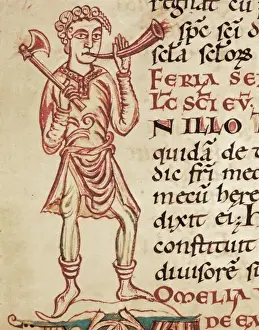 regnat cu
spc scī d
scła scłoꝝ
FERIA SE
Lc SCI EV
N ILLO T
quidā de t
dic frī me
mecū here
dixit ei
constituit
divisorē s
OMELIA
DE EA